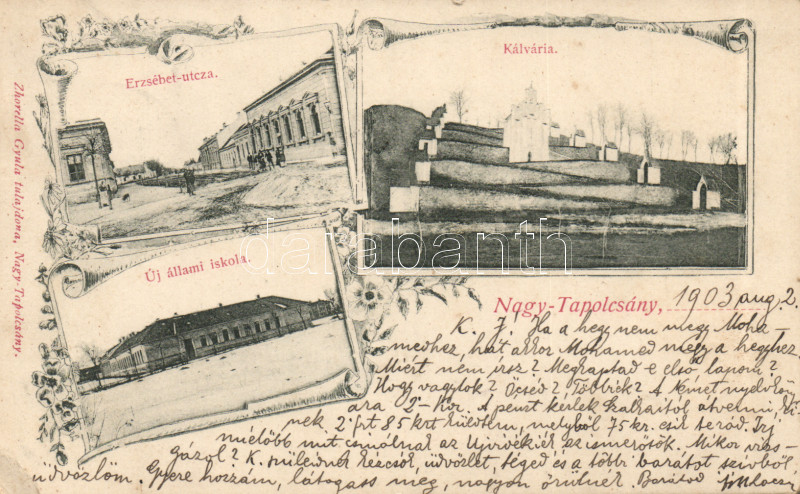 Erzsébet-utcza.
Kálvária.
Új állami iskola.
Zhorella Gyula tulajdona, Nagy-Tapolcsány.
darabanth
Nagy-Tapolcsány, 1903 aug 2.
K. J! Ha a hegy nem megy Moha-
medhez, hát akkor Mohamed megy a hegyhez
Miért nem irsz? Megkaptad e első lapom?
Hogy vagytok? Öcséd? Többiek? A német nyelvkön
ára 2 Kor. A pénzt kérlek átvenni
nek 2 frt 85 krt küldtem, melyből 75 kr.
mielőbb mit csinálnak az Ujvidékiek az ismerősök. Mikor viss-
K. szüleidnek kézcsók, üdvözlet, téged és a többi barátot szivből
üdvözlöm. Gyere hozzám, látogass meg, nagyon örülnék. Barátod